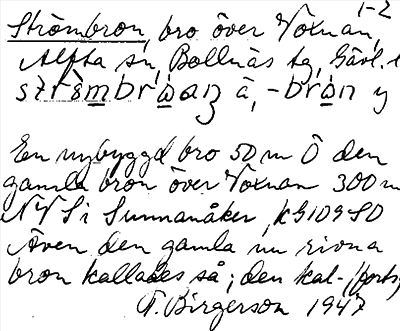 1-2
Strömbron, bro över Voxnan,
Alfta sn, Bollnäs tg, Gävl. l
En nybyggd bro 50 m Ö den
gamla bron över Voxnan 300 m
NV Sunnanåker, kS109SO
Även den gamla nu rivna
bron kallades så; den kal- (forts.
T. Birgerson 1947